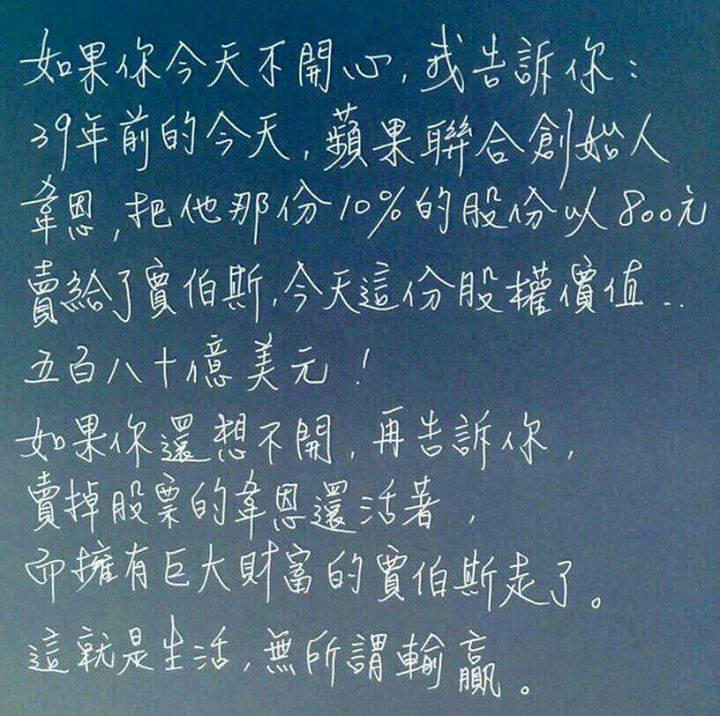 如果你今天不開心，我告訴你：
39年前的今天，蘋果聯合創始人
韋恩，把他那份10%的股份以800元
賣給了賈伯斯，今天這份股權價值..
五百八十億美元！
如果你還想不開，再告訴你，
賣掉股票的韋恩還活著，
而擁有巨大財富的賈伯斯走了。
這就是生活，無所謂輸贏。